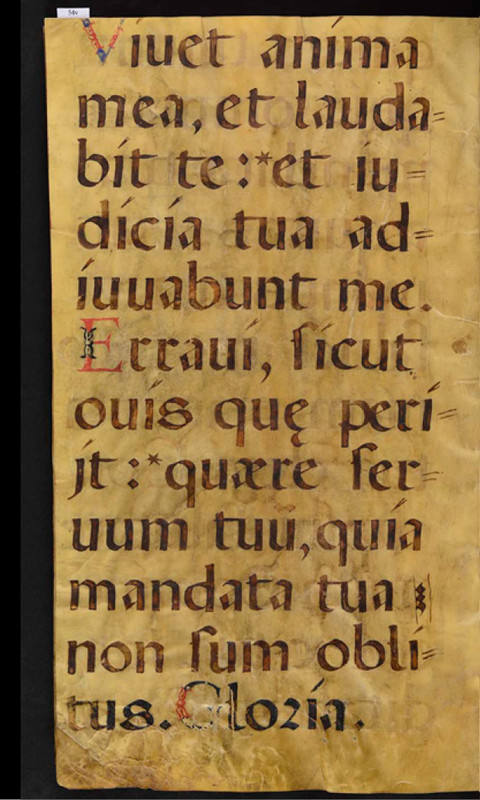 54v
Viuet anima
mea, et lauda=
bit te:*et iu=
dicia tua ad=
iuuabunt me.
Erraui, ſicut
ouis quę peri=
jt:*quære ſer=
uum tuū, quia
mandata tua
non ſum obli=
tus. Gloria.